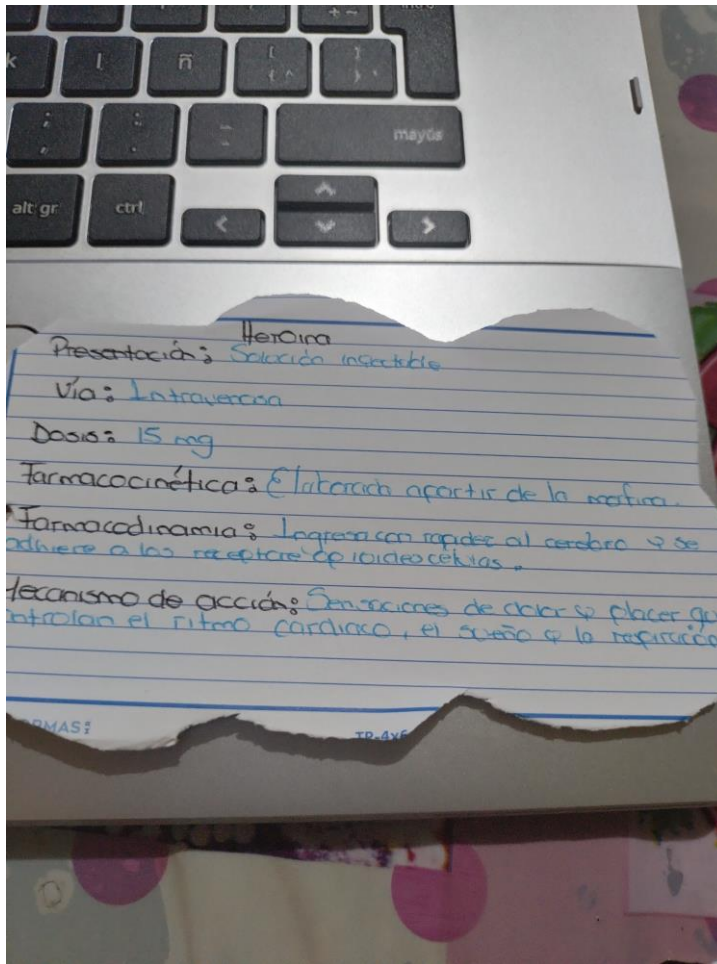 k
l
ñ
mayús
alt gr
ctrl
Heroína
Presentación: Solución inyectable
Vía: Intravenosa
Dosis: 15 mg
Farmacocinética: Elaborach apartir de la mofina.
Farmacodinamia: Ingresa con rapidez al cerebro y se
adhiere a los receptore opioideo células.
Mecanismo de acción: Sensaciones de dolor y placer qu
ntrolan el ritmo cardiaco, el sueño y la respiracio
RMAS:
TP-4x6